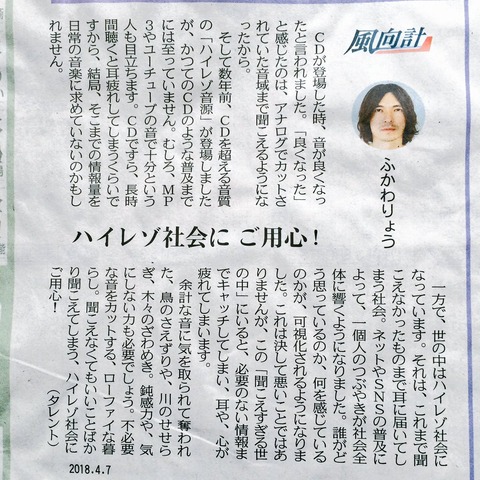 風向計
ふかわりょう
ハイレゾ社会に ご用心！
　CDが登場した時、音が良くなっ
たと言われました。「良くなった」
と感じたのは、アナログでカットさ
れていた音域まで聞こえるようにな
ったから。
　そして数年前、CDを超える音質
の「ハイレゾ音源」が登場しました
が、かつてのCDのような普及まで
には至っていません。むしろ、MP
3やユーチューブの音で十分という
人も目立ちます。CDですら、長時
間聴くと耳疲れしてしまうくらいで
すから、結局、そこまでの情報量を
日常の音楽に求めていないのかもし
れません。
　一方で、世の中はハイレゾ社会に
なっています。それは、これまで聞
こえなかったものまで耳に届いてし
まう社会。ネットやSNSの普及に
よって、一個人のつぶやきが社会全
体に響くようになりました。誰がど
う思っているのか、何を感じている
のかが、可視化されるようになりま
した。これは決して悪いことではあ
りませんが、この「聞こえすぎる世
の中」にいると、必要のない情報ま
でキャッチしてしまい、耳や、心が
疲れてしまいます。
　余計な音に気を取られて奪われ
た、鳥のさえずりや、川のせせら
ぎ、木々のざわめき。鈍感力や、気
にしない力も必要でしょう。不必要
な音をカットする、ローファイな暮
らし。聞こえなくてもいいことばか
り聞こえてしまう、ハイレゾ社会に
ご用心！
（タレント）
2018.4.7